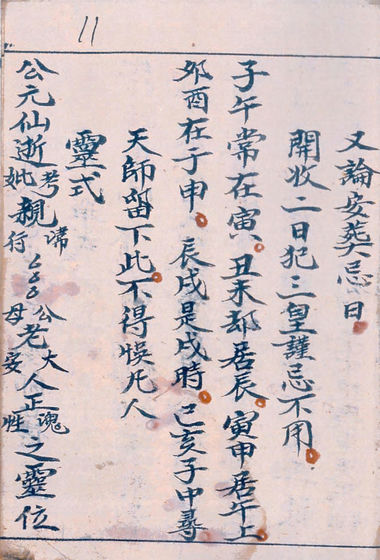 11
又論安葬忌日
開收二日犯三皇謹忌不用
子午常在寅丑未却居辰寅申居午上
夘酉在于申辰戌是戌時巳亥子中尋
天師畱下此不得悮凡人
靈式
公元仙逝考妣親諱行公母老大安人正魂性之靈位